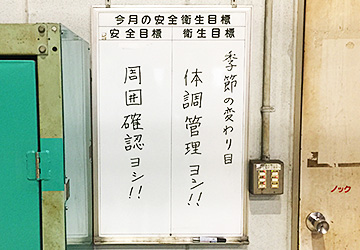 今月の安全衛生目標
安全目標 衛生目標
季節の変わり目
体調管理ヨシ!!
周囲確認ヨシ!!
ノック